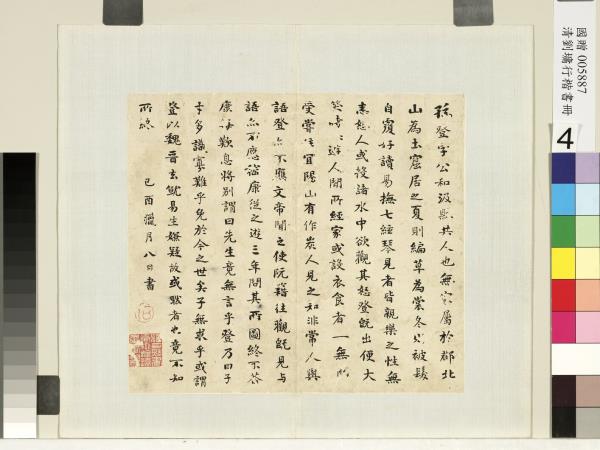 孫登字公和汲郡共人也無家屬於郡北
山為土窟居之夏則編草為裳冬則被髮
自覆好讀易撫一絃琴見者皆親樂之性無
恚怒人或投諸水中欲觀其怒登既出便大
笑時時游人間所經家或設衣食者一無所
受嘗住宜陽山有作炭人見之知非常人與
語登亦不應文帝聞之使阮籍往觀既見與
語亦不應嵇康從之遊三年問其所圖終不答
康每歎息將別謂曰先生竟無言乎登乃曰子
才多識寡難乎免於今之世矣子無求乎或謂
登以魏晉去就易生嫌疑故或默者也竟不知
所終
己酉臘月八日書
國贈 005887
清劉墉行楷書冊
4